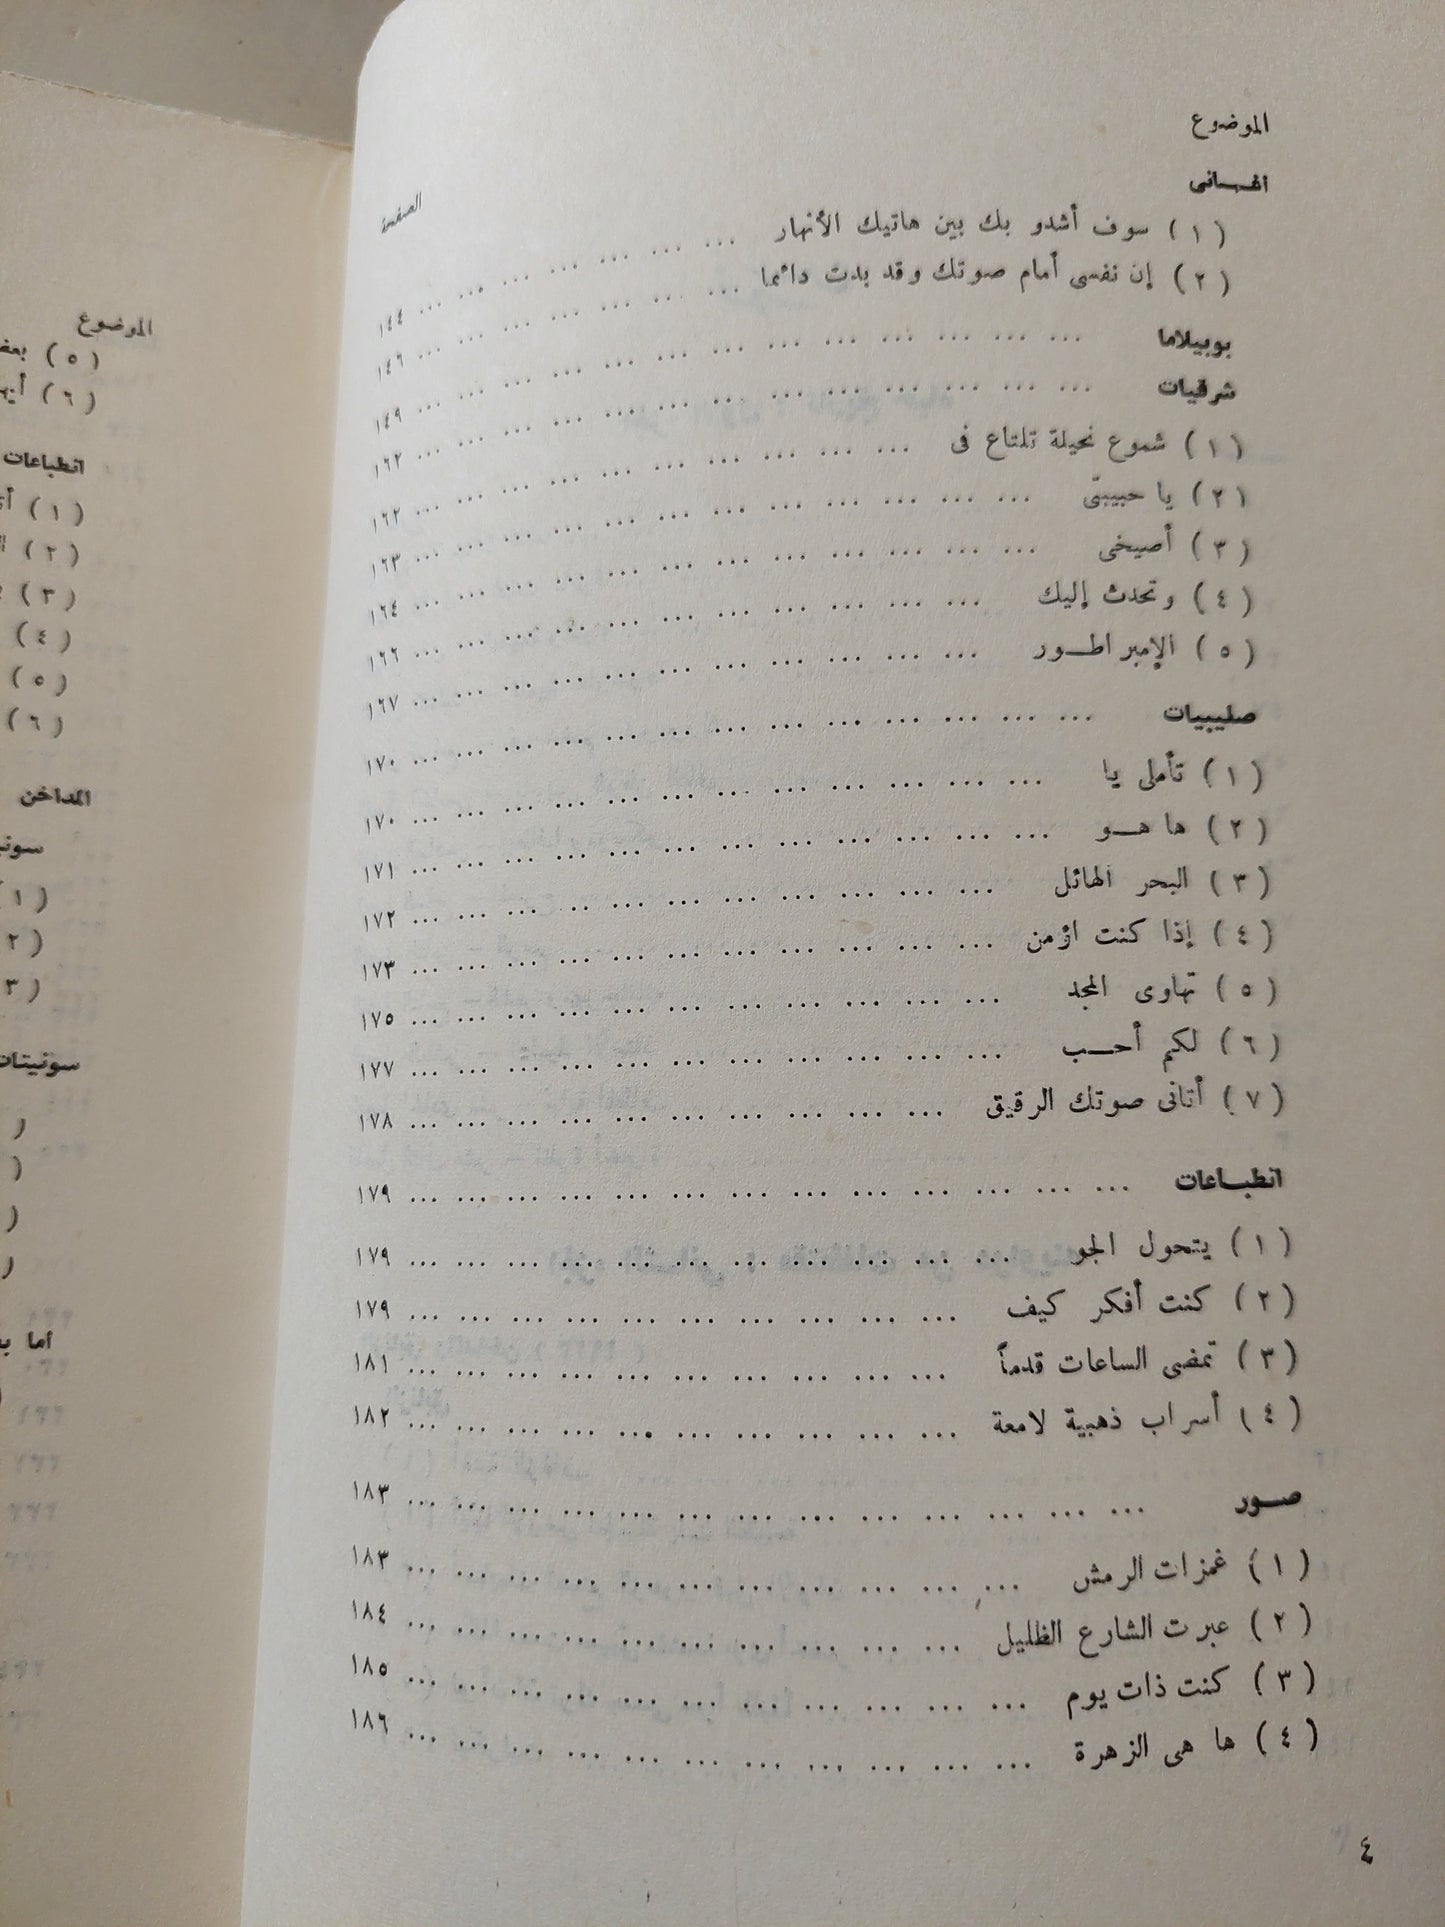 الموضوع
الصفحة
اغـــانى
( ١ ) سوف أشدو بك بين هاتيك الأنهار ... ... ... ... ... ... ... ١٤٤
( ٢ ) إن نفسى أمام صوتك وقد بدت دائما ... ... ... ... ... ... ... ١٤٦
بوبيلاما ... ... ... ... ... ... ... ... ... ... ... ... ... ١٤٩
شرقيات ... ... ... ... ... ... ... ... ... ... ... ... ... ١٦٢
( ١ ) شموع نحيلة تلتاع فى ... ... ... ... ... ... ... ... ... ... ١٦٢
( ٢ ) يا حبيبتى ... ... ... ... ... ... ... ... ... ... ... ... ١٦٣
( ٣ ) أصيخى ... ... ... ... ... ... ... ... ... ... ... ... ١٦٤
( ٤ ) وتحدث إليك ... ... ... ... ... ... ... ... ... ... ... ١٦٦
( ٥ ) الإمبراطـــور ... ... ... ... ... ... ... ... ... ... ... ١٦٧
صليبيات ... ... ... ... ... ... ... ... ... ... ... ... ... ١٧٠
( ١ ) تأملى يا ... ... ... ... ... ... ... ... ... ... ... ... ١٧٠
( ٢ ) ها هـــو ... ... ... ... ... ... ... ... ... ... ... ... ١٧١
( ٣ ) البحر الهائل ... ... ... ... ... ... ... ... ... ... ... ١٧٢
( ٤ ) إذا كنت اؤمن ... ... ... ... ... ... ... ... ... ... ... ١٧٣
( ٥ ) تهاوى المجد ... ... ... ... ... ... ... ... ... ... ... ١٧٥
( ٦ ) لكم أحـــب ... ... ... ... ... ... ... ... ... ... ... ١٧٧
( ٧ ) أتانى صوتك الرقيق ... ... ... ... ... ... ... ... ... ... ١٧٨
انطبـــاعات ... ... ... ... ... ... ... ... ... ... ... ... ... ١٧٩
( ١ ) يتحول الجو ... ... ... ... ... ... ... ... ... ... ... ١٧٩
( ٢ ) كنت أفكر كيف ... ... ... ... ... ... ... ... ... ... ١٧٩
( ٣ ) تمضى الساعات قدماً ... ... ... ... ... ... ... ... ... ... ١٨١
( ٤ ) أسراب ذهبية لامعة ... ... ... ... ... ... ... ... ... ... ١٨٢
صـــور ... ... ... ... ... ... ... ... ... ... ... ... ... ١٨٣
( ١ ) غمزات الرمش ... ... ... ... ... ... ... ... ... ... ... ١٨٣
( ٢ ) عبرت الشارع الظليل ... ... ... ... ... ... ... ... ... ... ١٨٤
( ٣ ) كنت ذات يوم ... ... ... ... ... ... ... ... ... ... ... ١٨٥
( ٤ ) ها هى الزهرة ... ... ... ... ... ... ... ... ... ... ... ١٨٦
٤
الموضوع
( ٥ )
( ٦ )
انطباعات
( ١ )
( ٢ )
( ٣ )
( ٤ )
( ٥ )
( ٦ )
المداخن
( ١ )
( ٢
( ٣
سونيتات
اما